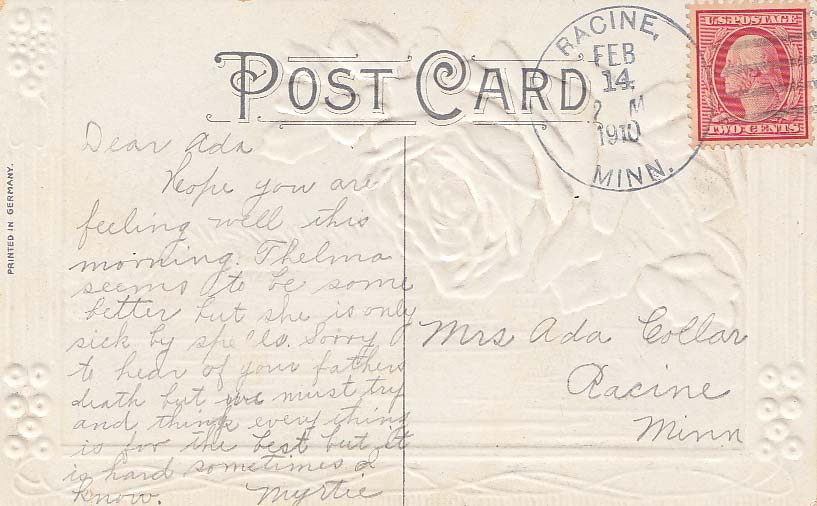 POST CARD
RACINE,
FEB
14
2 M
1910
MINN.
U.S. POSTAGE
TWO CENTS
PRINTED IN GERMANY.
Dear Ada
Hope you are
feeling well this
morning. Thelma
seems to be some
better but she is only
sick by spells. Sorry
to hear of your fathers
death but we must try
and think every thing
is for the best but it
is hard sometimes I
know. Myrtie
Mrs Ada Collar
Racine
Minn